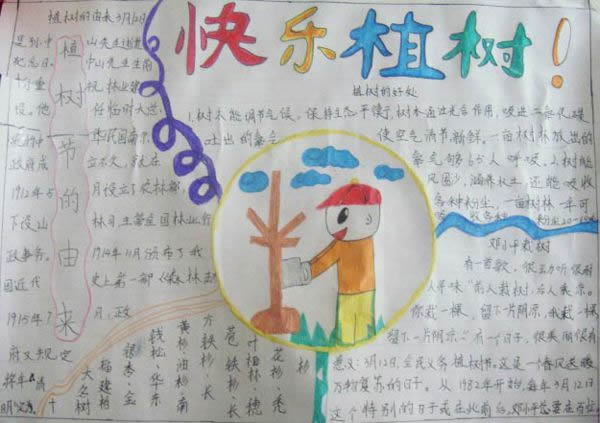 快乐植树!
植树的由来3月12日
植树节的由来
山先生逝世
纪念日。
中山先生生前
林业建
任临时大总
立不久,就在
1912年5
月设立了农林部,
下设山
林司,主管全国林业行
政事务。
1914年11月颁布了我
国近代
史上第一部《森林法》
1915年7
月,政
府又规定
植树的好处
1、树木能调节气候,保持生态平衡,树木通过光合作用,吸进二氧化碳
吐出的氧气
使空气清新。一亩树林放出的
氧气够65人呼吸,2、树能
风固沙,涵养水土,还能吸收
各种粉尘,一亩树林一年可
各种
粉尘20-60
邓小平栽树
有一首歌,很
人寻味“前人栽树,后人乘凉。
你栽一棵,留下一片阴凉,我栽一棵
留下一片阴凉。”有一个日子,很美丽很有
意义:3月12日,全民义务植树节。这是一个春风送暖
万物复苏的日子。从1982年开始,每年3月12日
这个特别的日子或在此前后,邓小平总要在百忙
杉
花杉、秃
叶柏林、穗
苍铁杉、长
铁杉、长
黄杉、油杉、南
钱松、华东
银杏、金
福建柏
大乔树